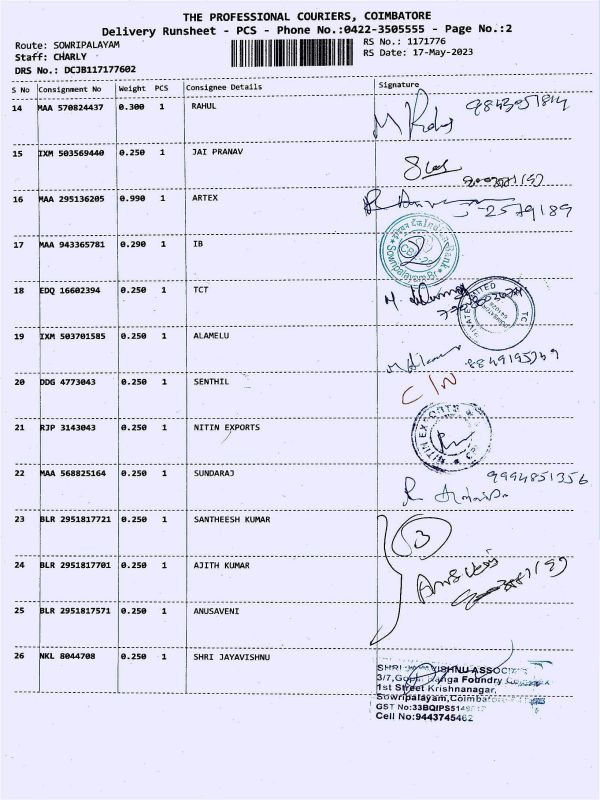 THE PROFESSIONAL COURIERS, COIMBATORE
Delivery Runsheet - PCS - Phone No.:0422-3505555 - Page No.:2
Route: SOWRIPALAYAM RS No.: 1171776
Staff: CHARLY RS Date: 17-May-2023
DRS No.: DCJB117177602
S No Consignment No Weight PCS Consignee Details Signature
14 MAA 570824437 0.300 1 RAHUL
15 IXM 503569440 0.250 1 JAI PRANAV
16 MAA 295136205 0.990 1 ARTEX 2579189
17 MAA 943365781 0.290 1 IB
18 EDQ 16602394 0.250 1 TCT
19 IXM 503701585 0.250 1 ALAMELU
20 DDG 4773043 0.250 1 SENTHIL C/N
21 RJP 3143043 0.250 1 NITIN EXPORTS NITIN EXPORTS
22 MAA 568825164 0.250 1 SUNDARAJ 9994851356
23 BLR 2951817721 0.250 1 SANTHEESH KUMAR 3
24 BLR 2951817701 0.250 1 AJITH KUMAR
25 BLR 2951817571 0.250 1 ANUSAVENI
26 NKL 8044708 0.250 1 SHRI JAYAVISHNU
SHRI VISHNU ASSOCI
3/7, Ganga Foundry
1st Street Krishnanagar,
Sowripalayam, Coimbatore
GST No:33BQIPS514
Cell No:9443745462